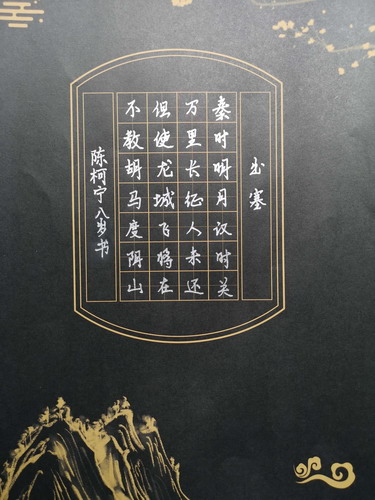 出塞
秦时明月汉时关
万里长征人未还
但使龙城飞将在
不教胡马度阴山
陈柯宁八岁书